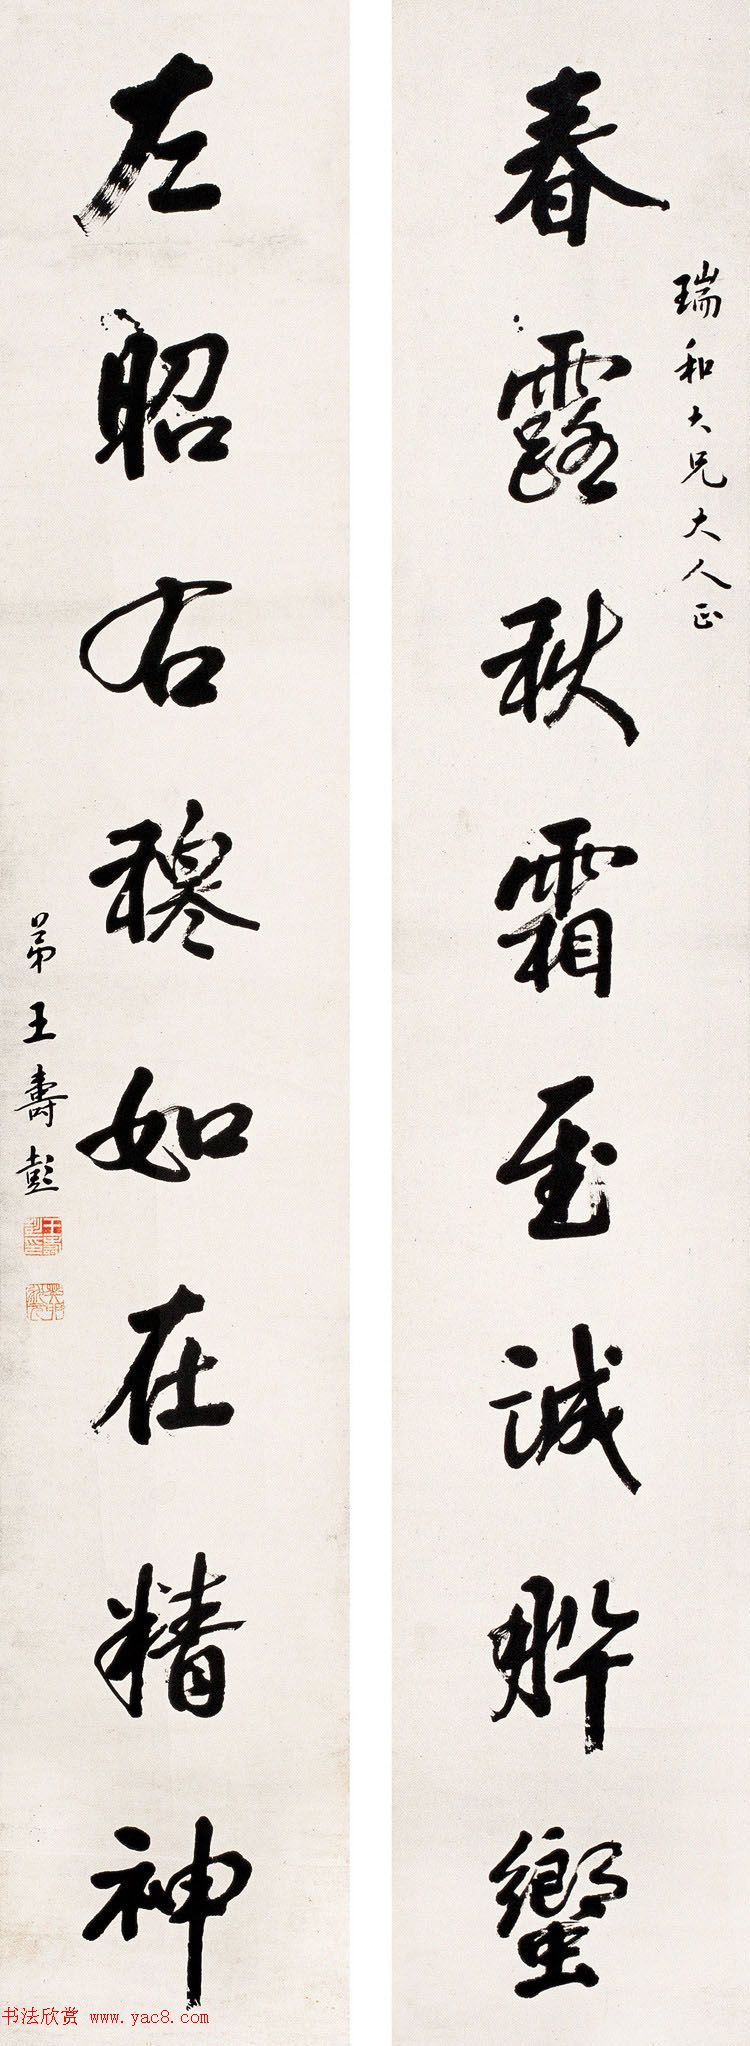 瑞和大兄大人正
春露秋霜至誠肸蠁
左昭右穆如在精神
弟王壽彭
王壽彭印
书法欣赏 www.yac8.com